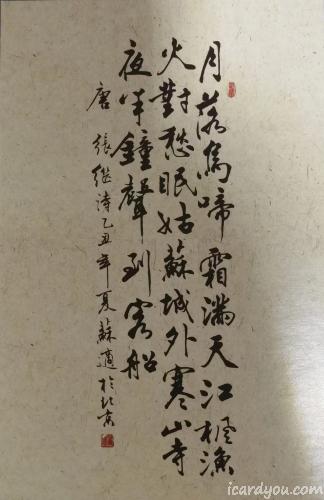 月落烏啼霜滿天江楓漁
火對愁眠姑蘇城外寒山寺
夜半鐘聲到客船
唐張繼詩乙丑年夏蘇適於北京
icardyou.com